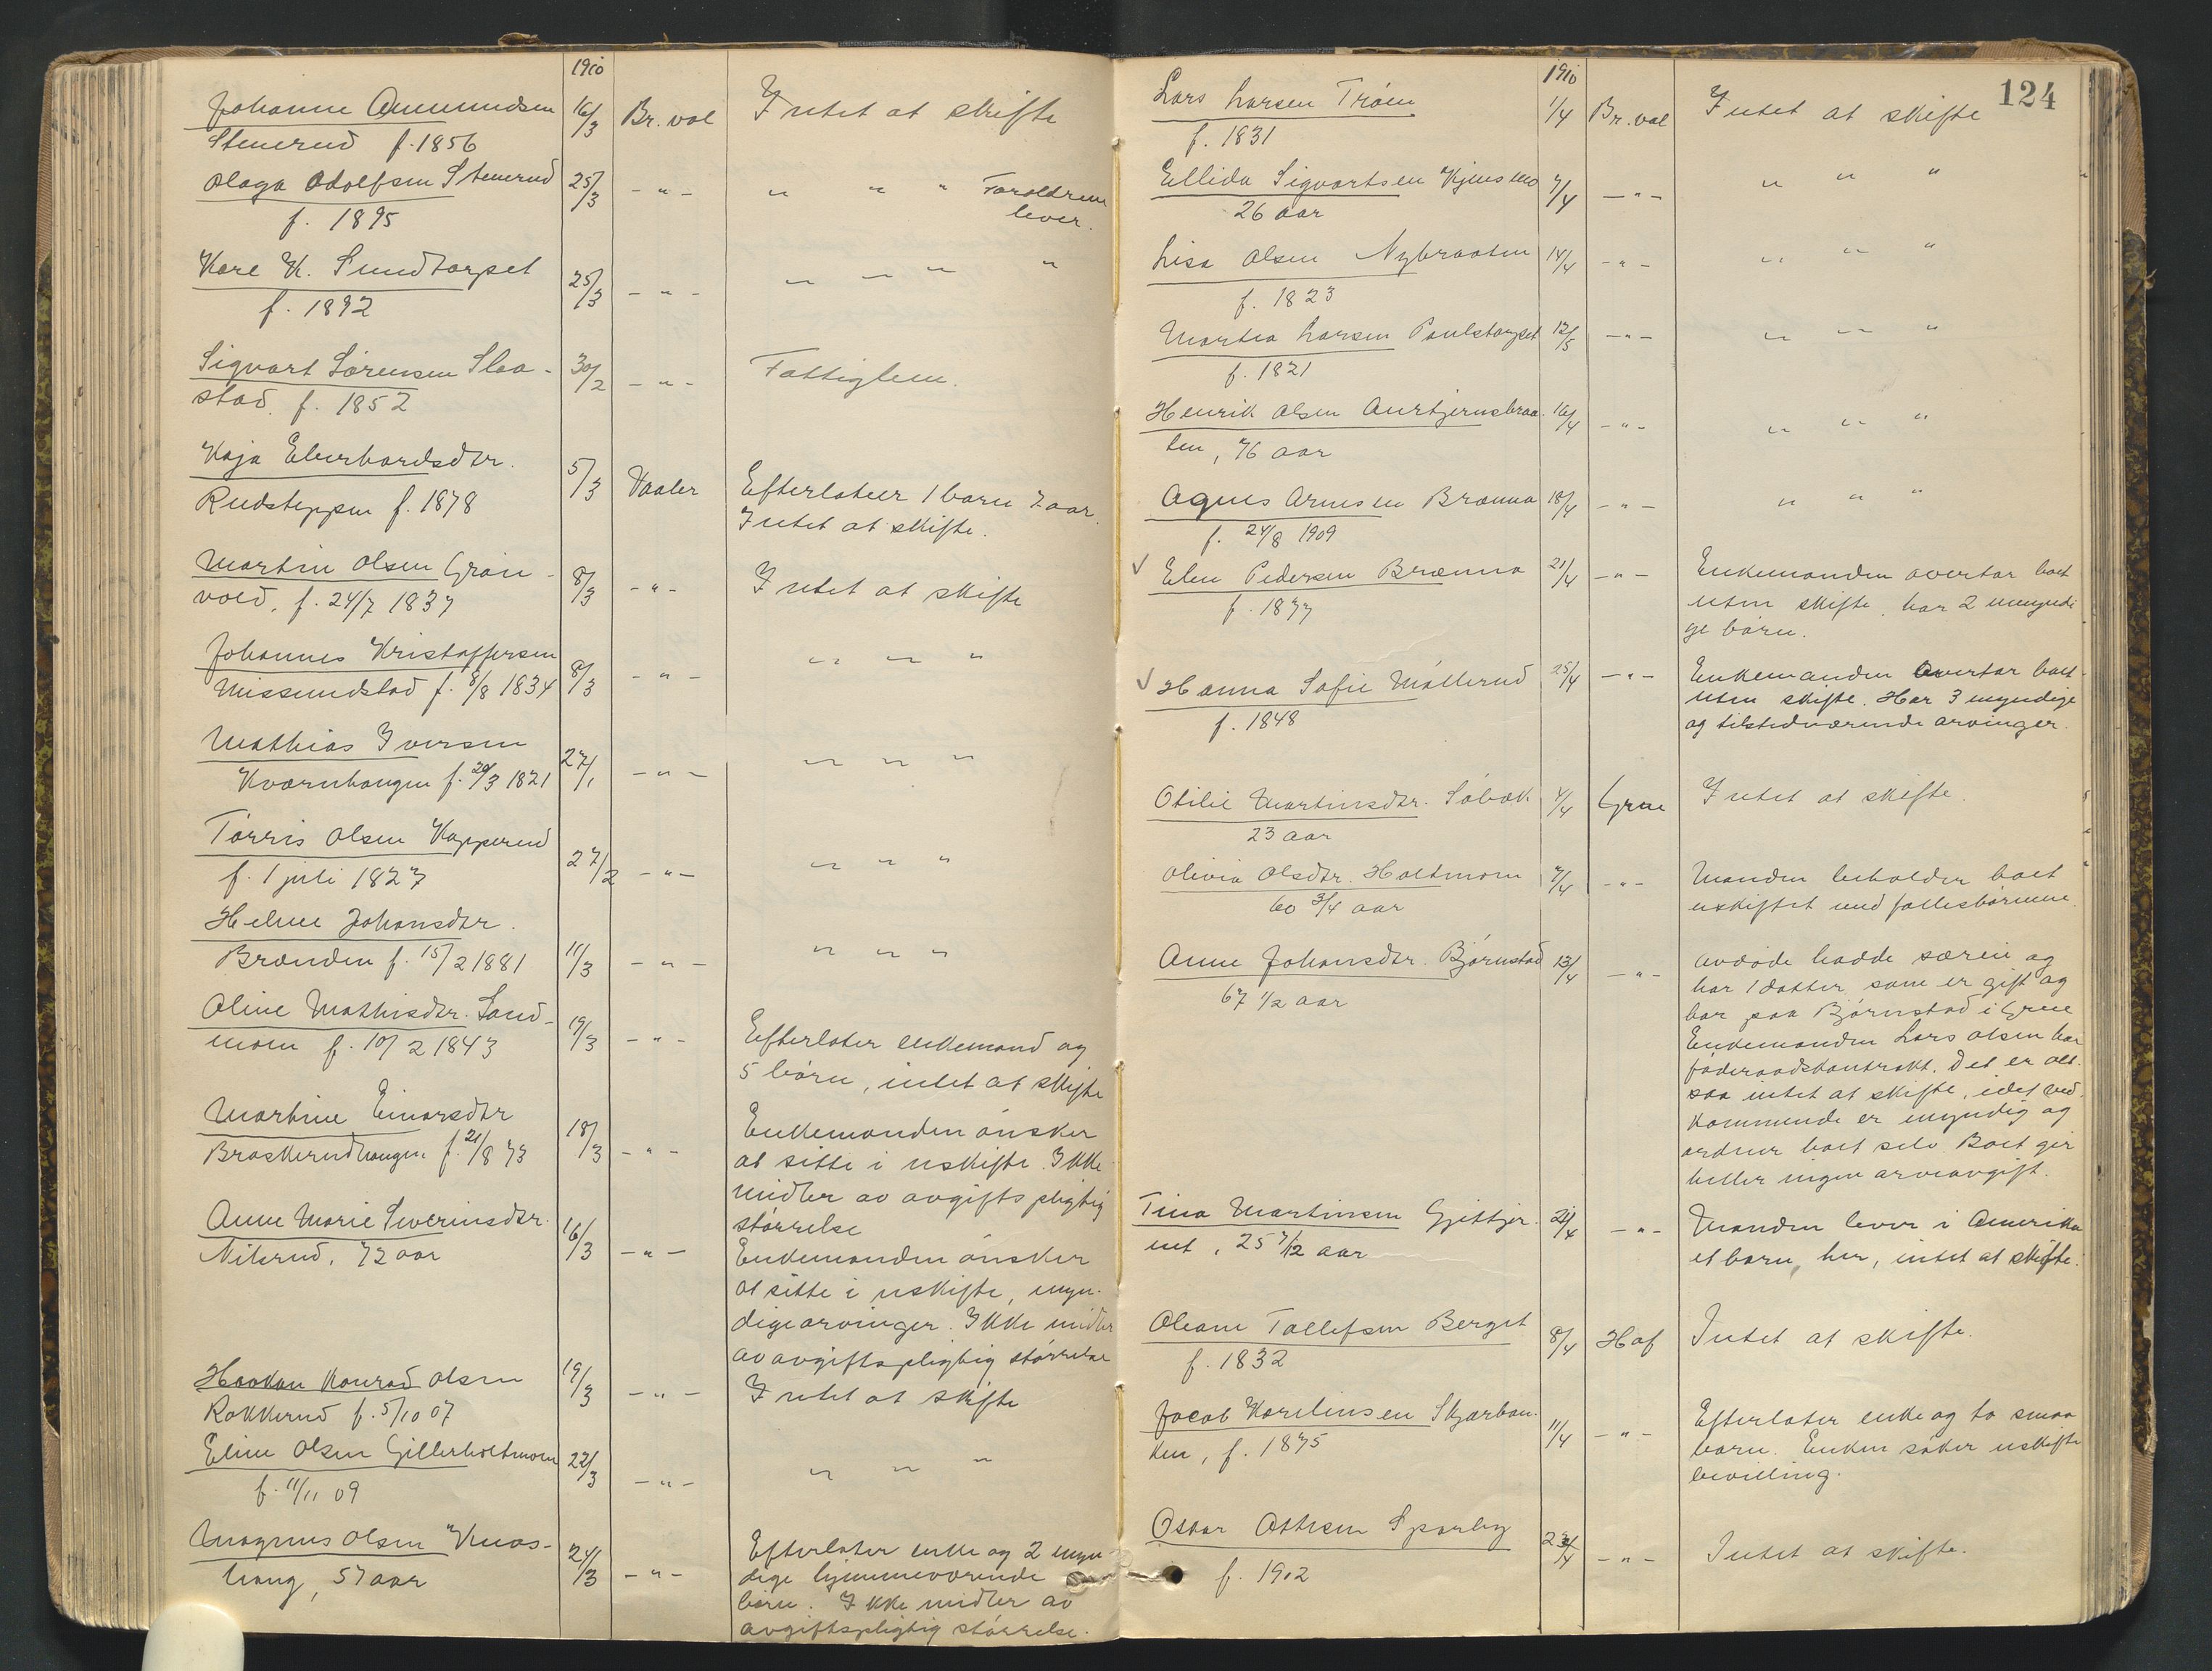 1910
Johanne Amundsen 16/3 Br.vol Intet at skifte
Stenerud f. 1856
Olaga Adolfsen Stenerud 25/3 - " - " " " Forældrene
f. 1895 lever.
Kare K. Sundtorpet 25/3 - " - " " " "
f. 1892
Sigvart Sørensen Slaa- 30/2 - " - Fattiglem.
stad. f. 1852
Kaja Eberhardsdtr. 5/3 Vaaler Efterlater 1 barn 7 aar.
Rudsteppen f. 1878 Intet at skifte.
Martin Olsen Grøn- 8/3 - " - Intet at skifte
vold, f. 24/7 1837
Johannes Kristoffersen 8/3 - " - " " "
Missundstad f. 8/8 1834
Mathias Iversen 27/1 - " - " " "
Kværnhaugen f. 20/3 1821
Tørris Olsen Kapperud 27/2 - " - " " "
f. 1 juli 1827
Helene Johansdtr. 11/3 - " - " " "
Brænden f. 15/2 1881
Oline Mathisdtr. Sand- 19/3 - " - Efterlater enkemand og
moen f. 10/2 1843 5 børn, intet at skifte
Martine Einarsdtr 18/3 - " - Enkemanden ønsker
Braskerudhaugen f. 21/8 73 at sitte i uskifte. Ikke
midler av avgiftspligtig
størrelse
Anne Marie Severinsdtr. 16/3 - " - Enkemanden ønsker
Nilsrud, 72 aar at sitte i uskifte, myn-
dige arvinger. Ikke midler
av avgiftspligtig størrelse
Haakon Konrad Olsen 19/3 - " - Intet at skifte
Rokkerud f. 5/10 07
Eline Olsen Gillerholtmoen 22/3 - " - " " "
f. 11/11 09
Magnus Olsen Knas- 24/3 - " - Efterlater enke og 2 myn-
haug, 57 aar dige hjemmeværende
børn. Ikke midler av
avgiftspligtig størrelse.
124
1910
Lars Larsen Trøen 1/4 Br.vol Intet at skifte
f. 1831
Ellida Sigvartsen Kjensmo 7/4 - " - " " "
26 aar
Lisa Olsen Nybraaten 14/4 - " - " " "
f. 1823
Martea Larsen Paulstorpet 12/5 - " - " " "
f. 1821
Henrik Olsen Aurtjernsbraa- 16/4 - " - " " "
ten, 76 aar
Agnes Arnesen Brænna 18/4 - " - " " "
f. 24/8 1909
✓ Elen Pedersen Brænna 21/4 - " - Enkemanden overtar boet
f. 1877 uten skifte, har 2 umyndi
ge børn.
✓ Hanna Sofie Møllerud 25/4 - " - Enkemanden overtar boet
f. 1848 uten skifte. Har 3 myndige
og tilstedværende arvinger.
Otilie Martinsdtr. Søbæk 4/4 Grue Intet at skifte
23 aar
Olivia Olsdtr. Holtmoen 7/4 - " - Manden beholder boet
60 3/4 aar uskiftet med fællesbørnene.
Anne Johansdtr. Bjørnstad 13/4 - " - Avdøde hadde særeie og
67 1/2 aar har 1 datter som er gift og
bor paa Bjørnstad i Grue
Enkemanden Lars Olsen har
føderaadskontrakt. Det er alt-
saa intet at skifte, idet ved-
kommende er myndig og
ordner boet selv. Boet gir
heller ingen arveavgift.
Tina Martinsen Gjettjer- 21/4 - " - Manden lever i Amerika
net, 25 7/12 aar et barn her, intet at skifte.
Oleane Tollefsen Berget 8/4 Hof Intet at skifte.
f. 1832
Jacob Karelinsen Skjærbæk- 11/4 - " - Efterlater enke og to smaa
ken, f. 1875 barn. Enken søker uskifte
bevilling.
Oskar Ottesen Sparby 23/4 - " - Intet at skifte.
f. 1902